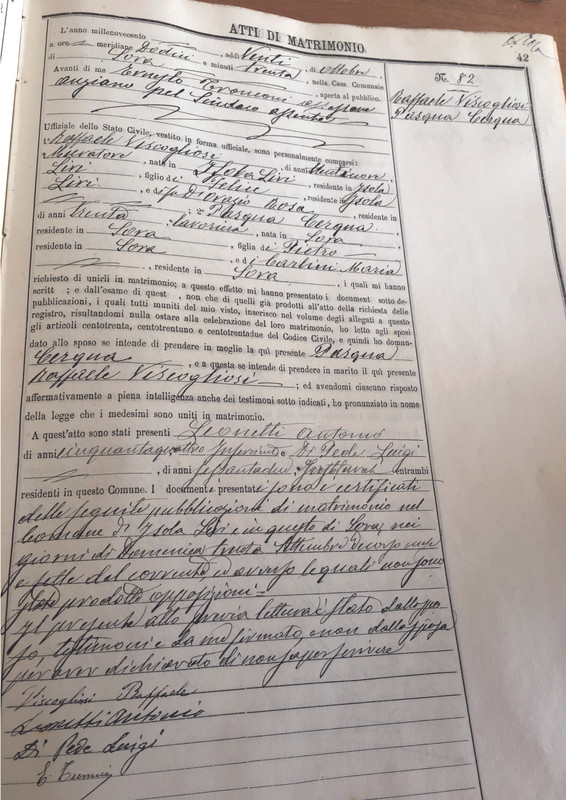 ATTI DI MATRIMONIO
42
L'anno millenovecento , addì Venti , di Ottobre ,
a ore meridiane Dodici e minuti trenta , nella Casa Comunale
di Sora , aperta al pubblico.
Avanti di me Ernesto Assessore
anziano pel Sindaco assente
Uffiziale dello Stato Civile, vestito in forma uffiziale, sono personalmente comparsi:
1° Raffaele Viscogliosi , di anni
, nato in Isola Liri , residente in Isola
Liri , figlio di Felice , residente in Isola
Liri , e di fu Di Orazio Rosa , residente in
; 2° Pasqua Cerqua ,
di anni trenta , , nata in Sora ,
residente in Sora , figlia di Pietro ,
residente in Sora , e di Carlini Maria
, residente in Sora , i quali mi hanno
richiesto di unirli in matrimonio; a questo effetto mi hanno presentato i document sotto de-
scritt ; e dall'esame di quest , non che di quelli già prodotti all'atto della richiesta delle
pubblicazioni, i quali tutti muniti del mio visto, inserisco nel volume degli allegati a questo
registro, risultandomi nulla ostare alla celebrazione del loro matrimonio, ho letto agli sposi
gli articoli centotrenta, centotrentuno e centotrentadue del Codice Civile, e quindi ho doman-
dato allo sposo se intende di prendere in moglie la quì presente Pasqua
Cerqua , e a questa se intende di prendere in marito il quì presente
Raffaele Viscogliosi ; ed avendomi ciascuno risposto
affermativamente a piena intelligenza anche dei testimoni sotto indicati, ho pronunziato in nome
della legge che i medesimi sono uniti in matrimonio.
A quest'atto sono stati presenti Leonetti Antonio ,
di anni cinquantaquattro e Di Pede Luigi
, di anni settantadue , entrambi
residenti in questo Comune. I document presentati sono i certificati
delle seguite pubblicazioni di matrimonio nel
Comune di Isola Liri e in questo di Sora, nei
giorni di Domenica trenta Settembre decorso mese
e sette del corrente ed avverso le quali non sono
state prodotte opposizioni.
Il presente atto previa lettura è stato dallo spo-
so, testimoni e da me firmato, e non dalla sposa
per aver dichiarato di non saper scrivere
Viscogliosi Raffaele
Leonetti Antonio
Di Pede Luigi
N. 82
Raffaele Viscogliosi
Pasqua Cerqua